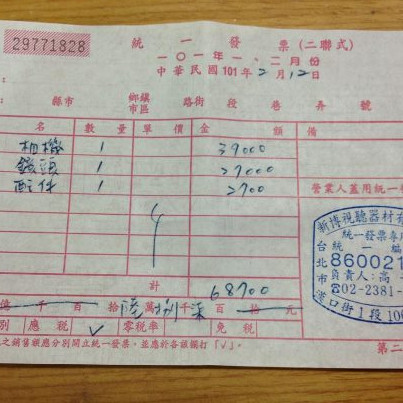 29771828
統一發票(二聯式)
一〇一年一、二月份
中華民國101年2月12日
縣市 鄉鎮市區 路街 段 巷 弄 號
名 數量 單價 金額 備
相機 1 39000
鏡頭 1 27000
配件 1 2700
營業人蓋用統一
計 68700
億 千 百 拾 陸萬捌千柒百 拾 元
別 應稅 V 零稅率 免稅
之銷售額應分別開立統一發票,並應於各該欄打「V」。
第二
新博視聽器材有
統一發票專用
台 統一編
北 860021
市 負責人:高
☎02-2381-
漢口街1段10